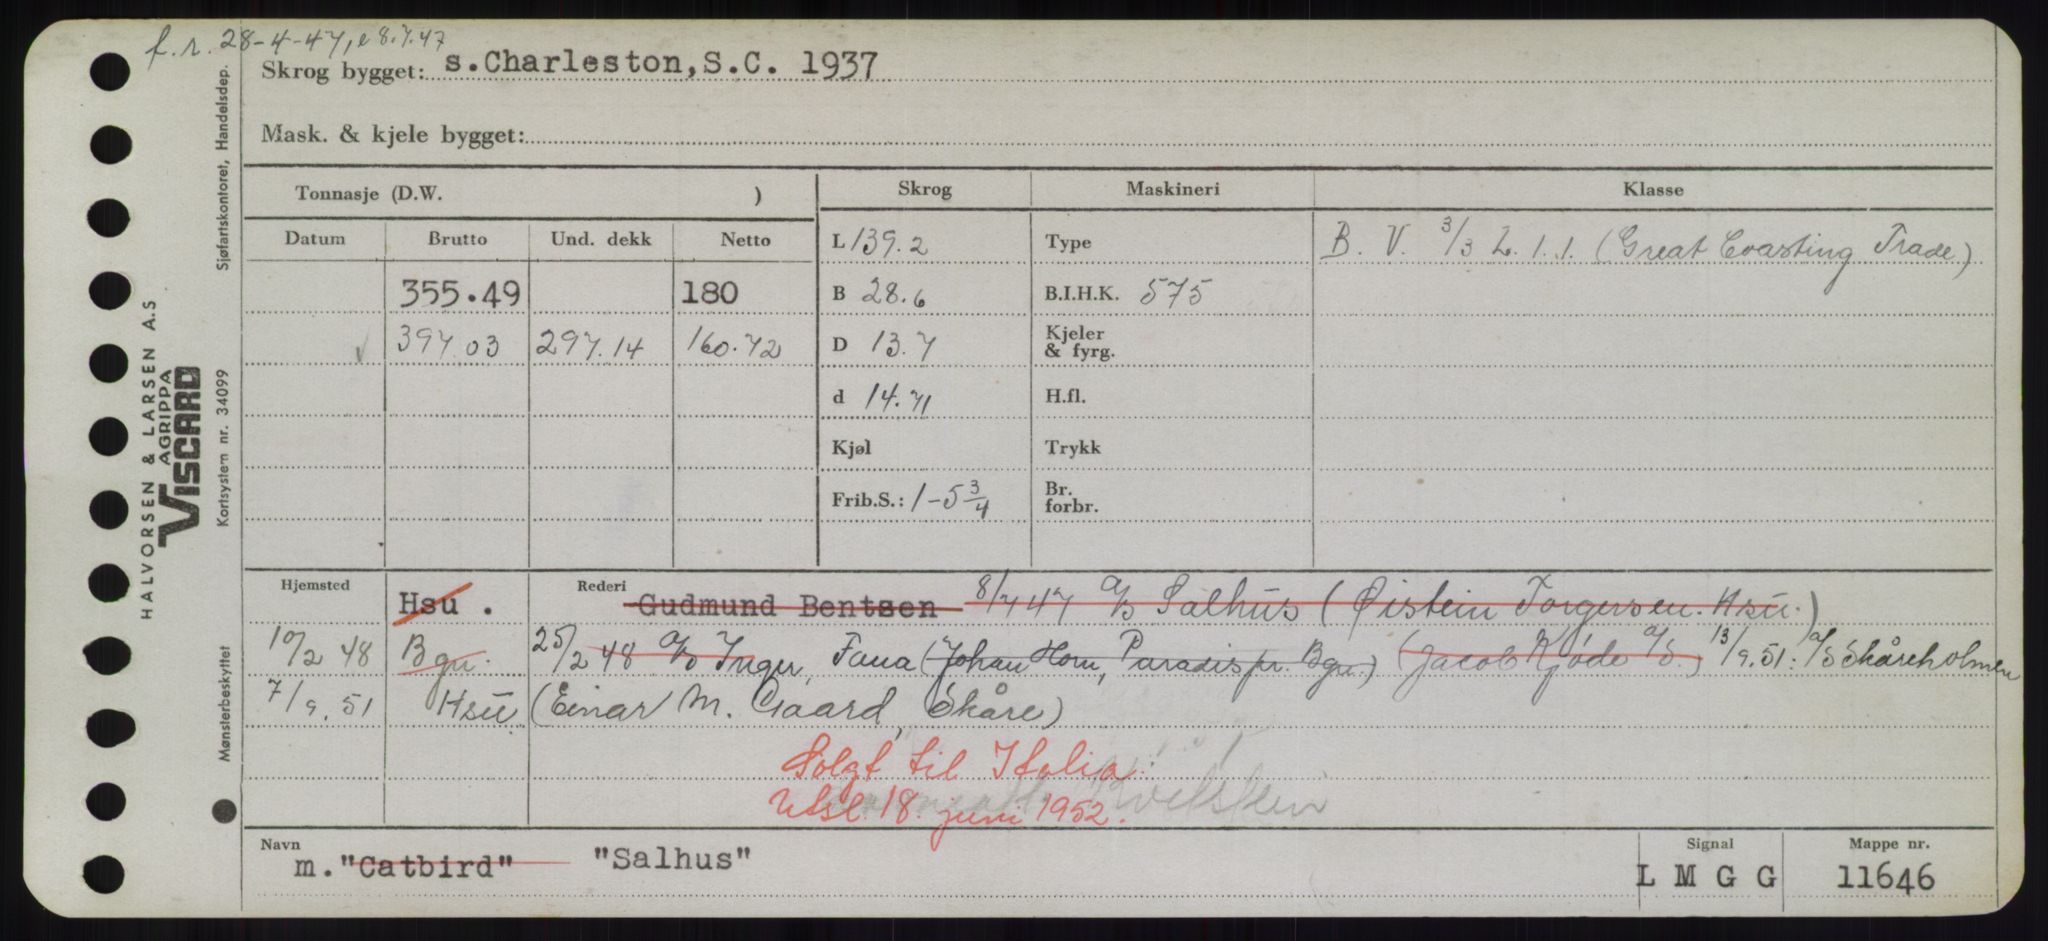 f.r. 28-4-47, e 8.7.47
Skrog bygget: s.Charleston,S.C. 1937
Mask. & kjele bygget:
Tonnasje (D.W. )
Skrog
Maskineri
Klasse
Datum
Brutto
Und. dekk
Netto
L 139.2
Type
B. V. 3/3 L. 1. 1. (Great Coasting Trade)
355.49
180
B 28.6
B.I.H.K. 575
397.03
297.14
160.72
D 13.7
Kjeler
& fyrg.
d 14.71
H.fl.
Kjøl
Trykk
Frib.S.: 1-5 3/4
Br.
forbr.
Hjemsted
Hsu .
Rederi
Gudmund Bentsen 8/7 47 A/S Salhus (Øistein Torgersen. Hsu.)
10/2 48 Bgn. 25/2 48 A/S Inger, Fana (Johan Horn, Paradis pr. Bgn.) (Jacob Kjøde A/S.) 13/9.51: A/S Skåreholmen
7/9.51 Hsu (Einar M. Gaard, Skåre)
Solgt til Italia
Utsl. 18. juni 1952.
Navn
m."Catbird" "Salhus"
Signal
L M G G
Mappe nr.
11646
Sjøfartskontoret, Handelsdep.
Kortsystem nr. 34099
Mønsterbeskyttet
HALVORSEN & LARSEN A.S
AGRIPPA
VISCARD